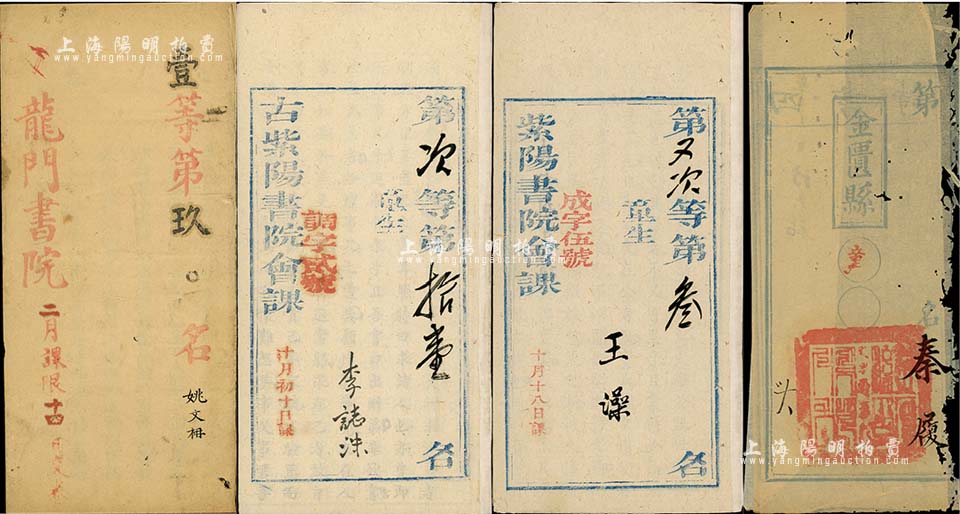 上海陽明拍賣
www.yangmingauction.com
壹等第玖名
姚文枏
龍門書院
二月課限十四日
第次等第拾壹名
童生
調字貳號
李誌洙
十月初十日課
古紫陽書院會課
第又次等第叁名
童生
成字伍號
王藻
十月十八日課
紫陽書院會課
第
名
秦履
金匱縣
童
上海陽明拍賣
www.yangmingauction.com
上海陽明拍賣
www.yangmingauction.com